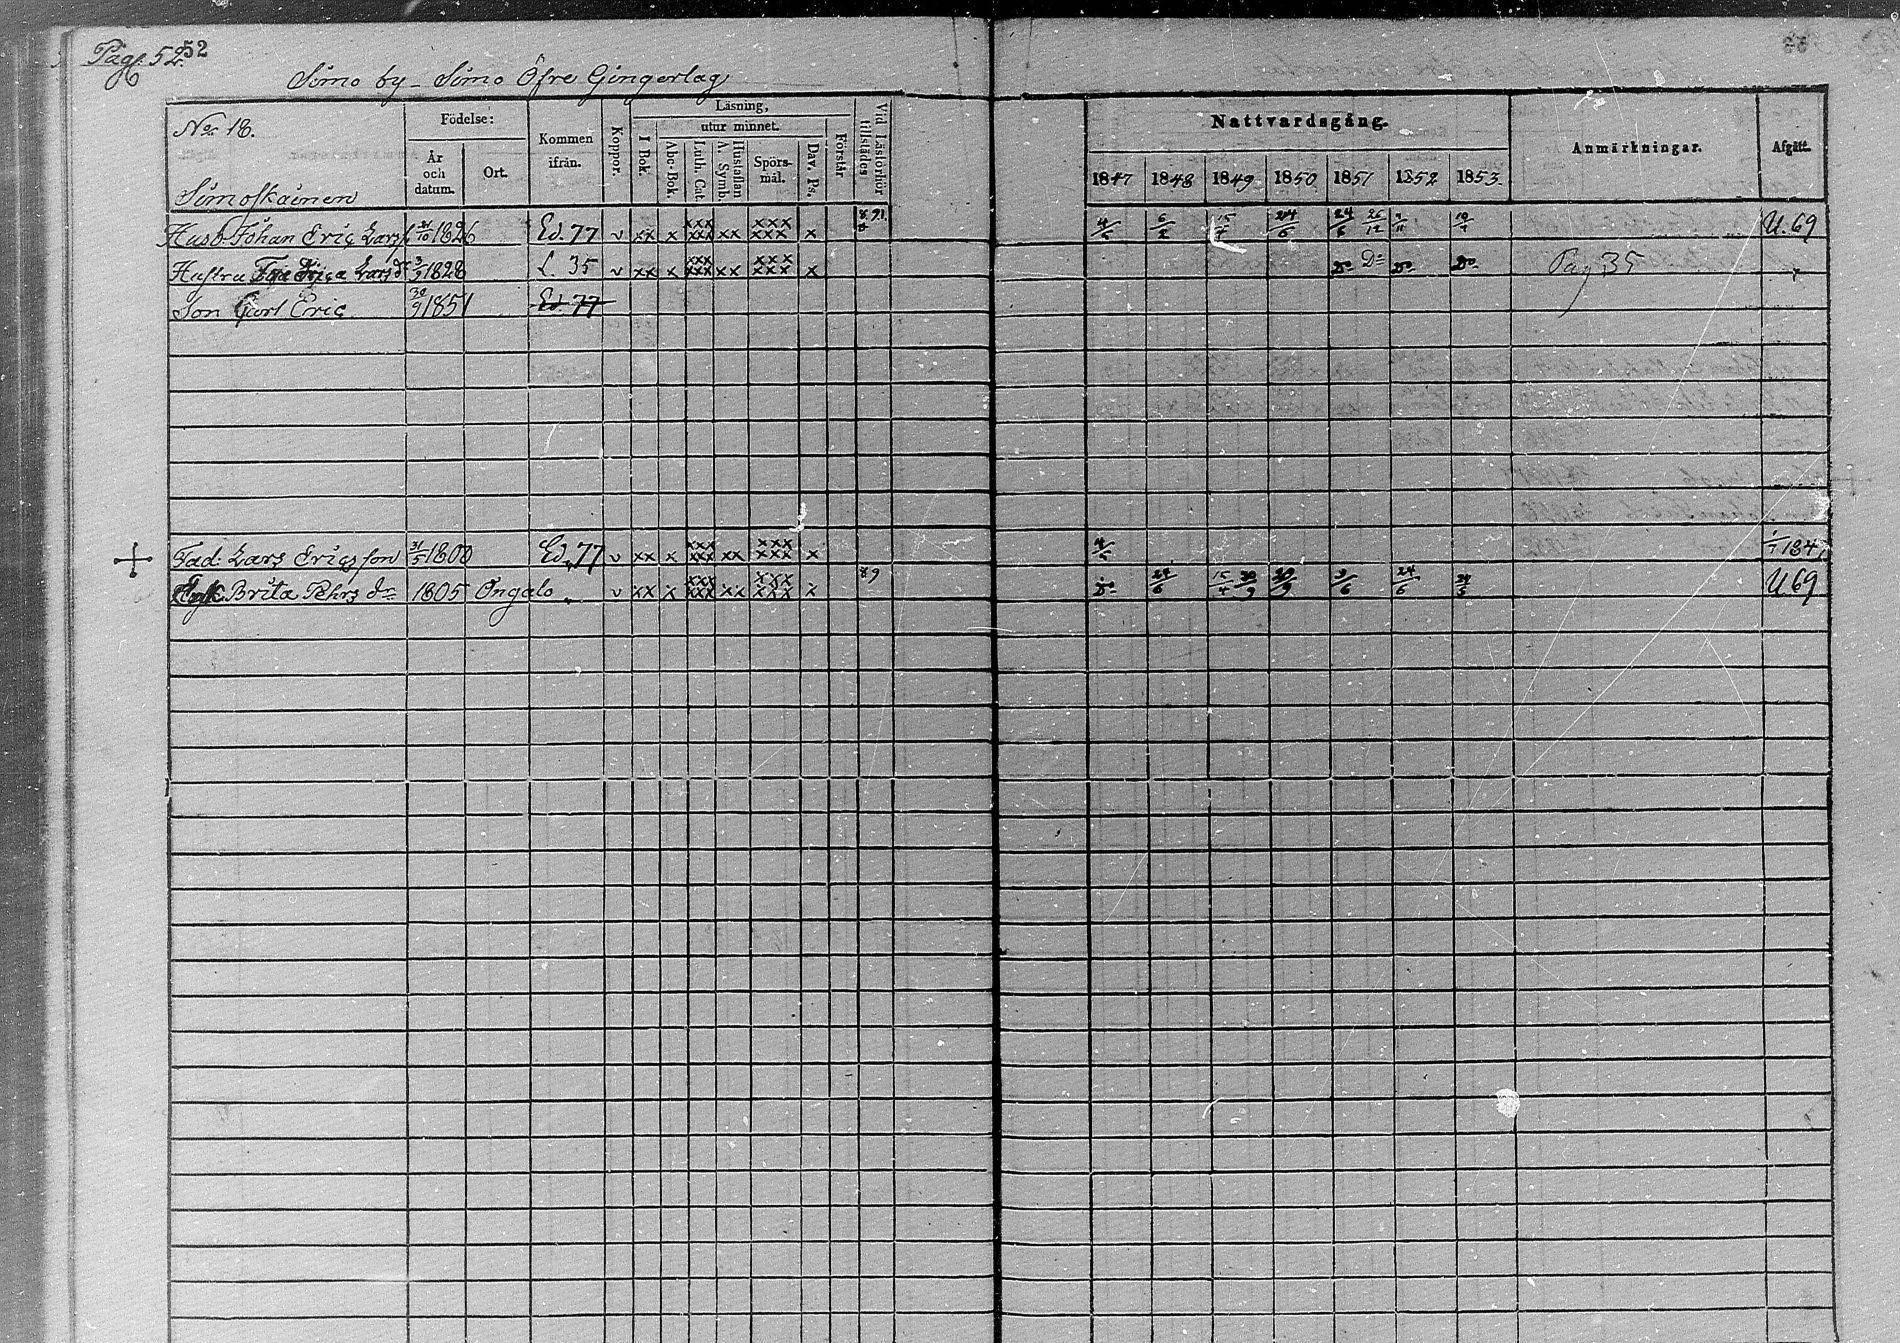 Pag. 52. 52
Simo by - Simo Öfre Gingerlag
No 18.
Simoskainen
Födelse:
År och datum.
Ort.
Kommen ifrån.
Koppor.
Läsning,
utur minnet.
I Bok.
Abc-Bok.
Luth. Cat.
Hustaflan A. Symb.
Spörs-mål.
Dav. Ps.
Förstår
Vid Läsförhör tillstädes
Nattvardsgång.
1847 1848 1849 1850 1851 1852 1853
Anmärkningar.
Afgått.
Husb Johan Eric Larss 31/10 1826 Ed. 77 v xx x xxx xxx xx xxx xxx x 6/2 15/4 24/6 24/6 26/12 U. 69
Hustru Erica Larsdr 3/9 1828 L. 35 v xx x xxx xxx xx xxx xxx x Do Do Do Do Pag 35
Son Carl Eric 30/9 1851 Ed. 77
Fad: Lars Ericsson 31/5 1800 Ed. 77 v xx x xxx xxx xx xxx xxx x
Enk Brita Pehrs dr 1805 Ongalo " v xx x xxx xxx xx xxx xxx x 89 Do 24/6 15/4 30/9 30/9 3/6 24/6 U. 69